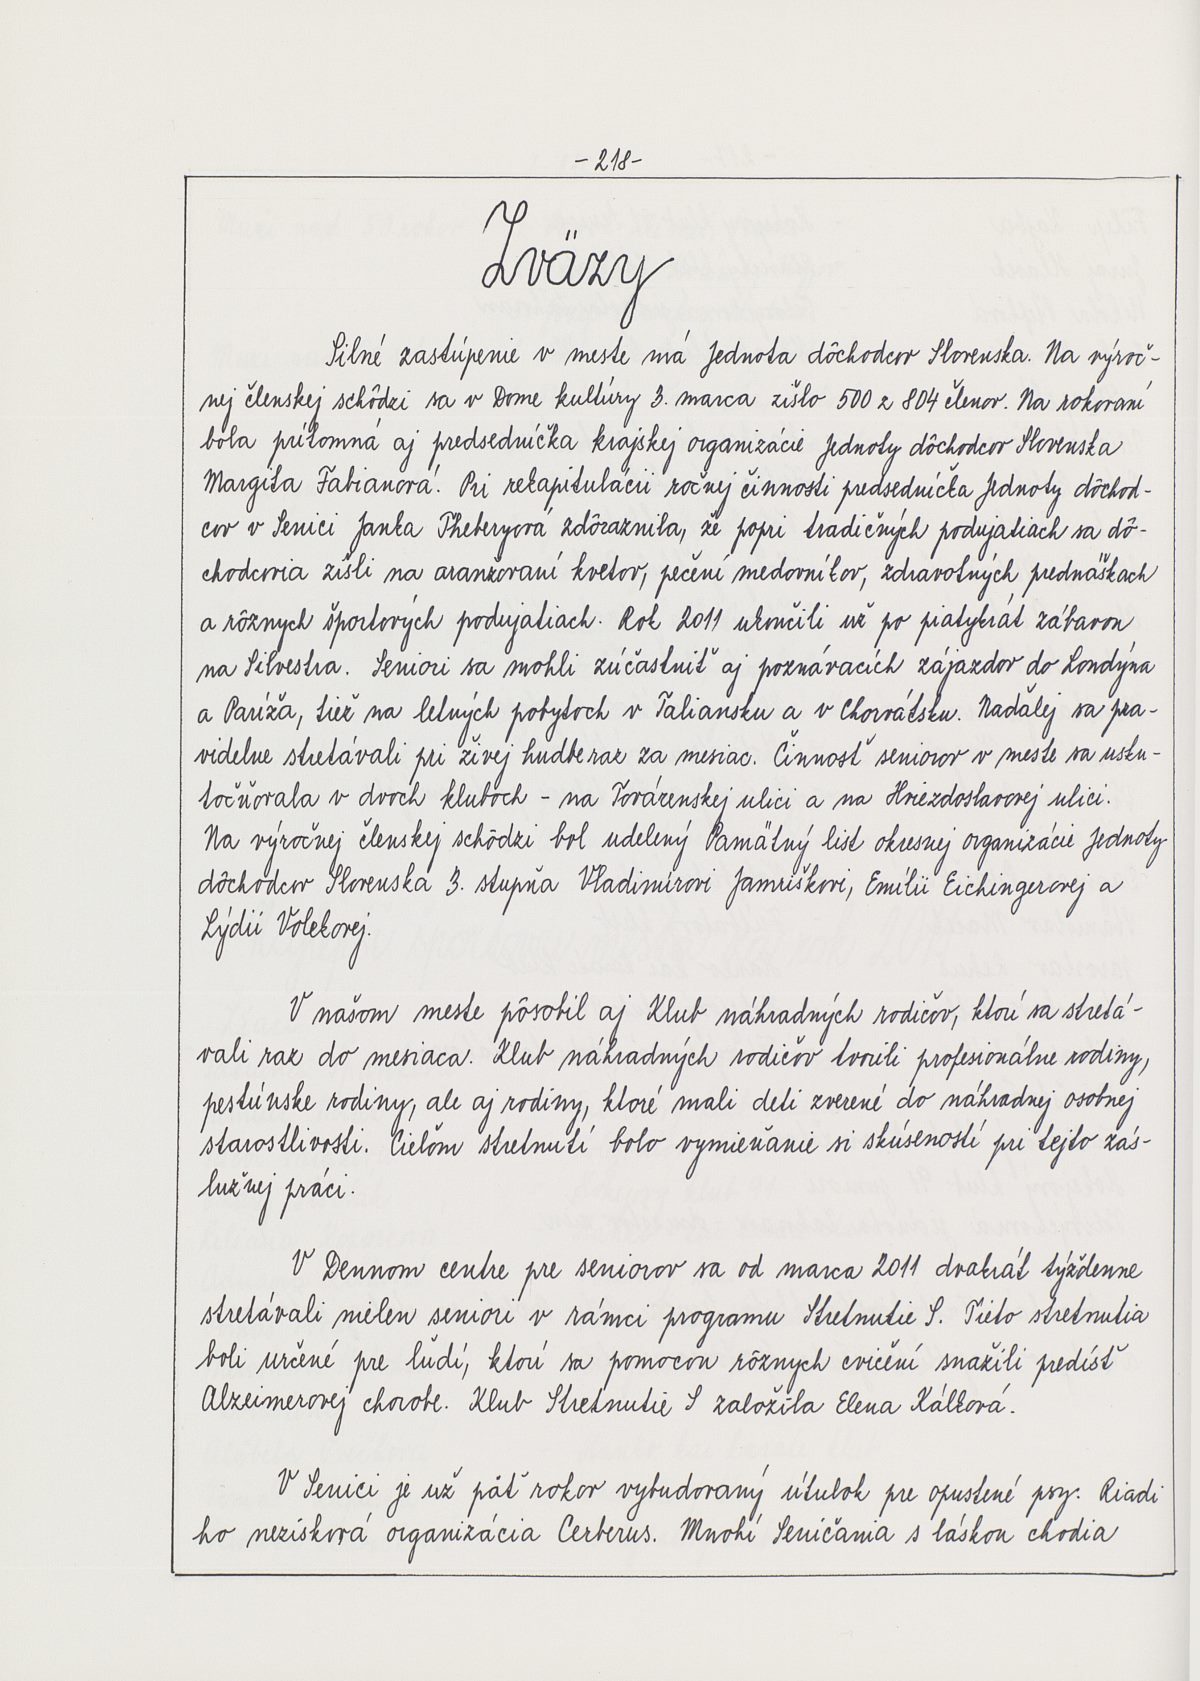 - 218 -
Zväzy
Silné zastúpenie v meste má Jednota dôchodcov Slovenska. Na výroč-
nej členskej schôdzi sa v Dome kultúry 3. marca zišlo 500 z 804 členov. Na rokovaní
bola prítomná aj predsedníčka krajskej organizácie Jednoty dôchodcov Slovenska
Margita Fabianová. Pri rekapitulácii ročnej činnosti predsedníčka Jednoty dôchod-
cov v Senici Janka Theberyová zdôraznila, že popri tradičných podujatiach sa dô-
chodcovia zišli na aranžovaní kvetov, pečení medovníkov, zdravotných prednáškach
a rôznych športových podujatiach. Rok 2011 ukončili už po piatykrát zábavou
na Silvestra. Seniori sa mohli zúčastniť aj poznávacích zájazdov do Londýna
a Paríža, tiež na letných pobytoch v Taliansku a v Chorvátsku. Naďalej sa pra-
videlne stretávali pri živej hudbe raz za mesiac. Činnosť seniorov v meste sa usku-
točňovala v dvoch kluboch - na Továrenskej ulici a na Hviezdoslavovej ulici.
Na výročnej členskej schôdzi bol udelený Pamätný list okresnej organizácie Jednoty
dôchodcov Slovenska 3. stupňa Vladimírovi Jamriškovi, Emílii Eichingerovej a
Lýdii Volekovej.
V našom meste pôsobil aj Klub náhradných rodičov, ktorí sa stretá-
vali raz do mesiaca. Klub náhradných rodičov tvorili profesionálne rodiny,
pestúnske rodiny, ale aj rodiny, ktoré mali deti zverené do náhradnej osobnej
starostlivosti. Cieľom stretnutí bolo vymieňanie si skúseností pri tejto zás-
lužnej práci.
V Dennom centre pre seniorov sa od marca 2011 dvakrát týždenne
stretávali nielen seniori v rámci programu Stretnutie S. Tieto stretnutia
boli určené pre ľudí, ktorí sa pomocou rôznych cvičení snažili predísť
Alzeimerovej chorobe. Klub Stretnutie S založila Elena Kálková.
V Senici je už päť rokov vybudovaný útulok pre opustené psy. Riadi
ho nezisková organizácia Cerberus. Mnohí Seničania s láskou chodia